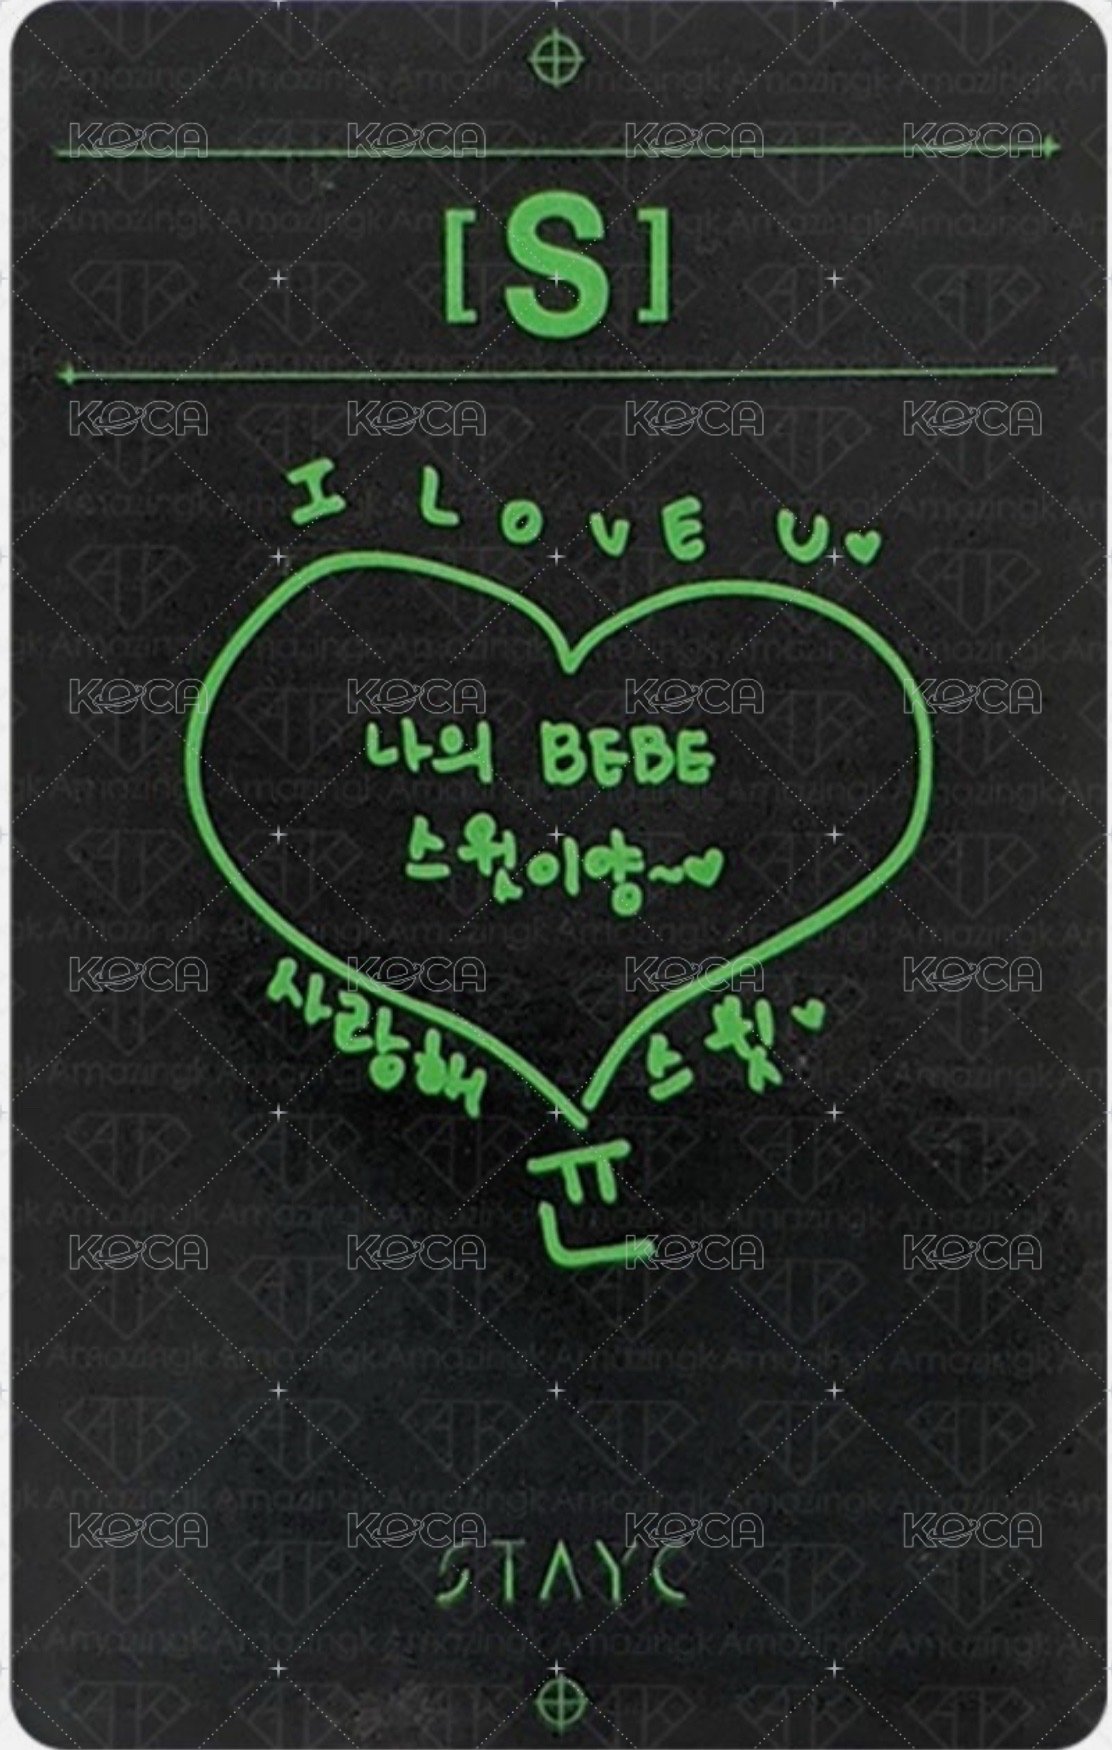 [S]
I LOVE U♥
나의 BEBE
스윗이양~♥
사랑해 스윗♥
STAYC
KOCA
Amazingk